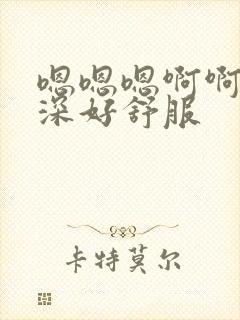 嗯嗯嗯啊啊
深好舒服
卡特莫尔